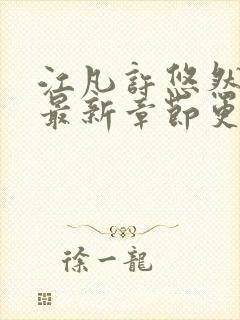 江凡許悠然
最新章節更
徐一龍